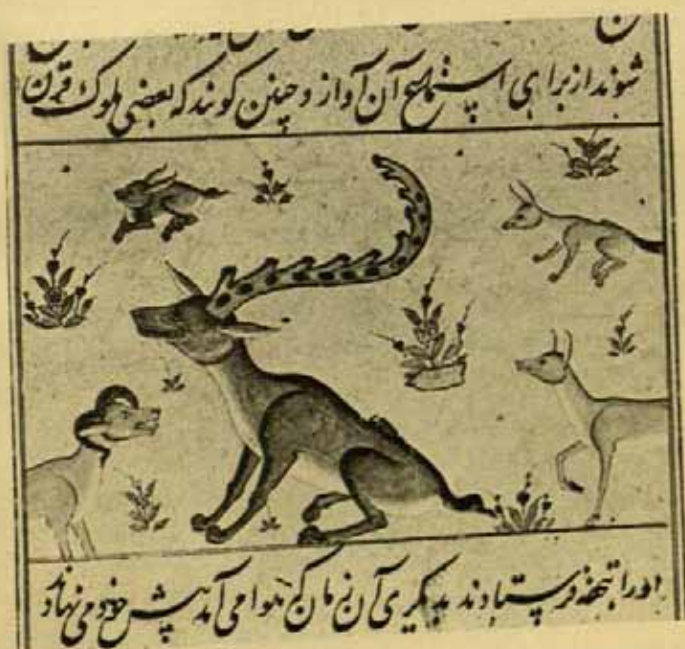 شوند از برای استماع آن آواز و چنین کویند که بعضی ملوک قرن
اورا بتحفه فرستادند بدیکری آن زمان که هوا می آمد پیش خود می نهاد